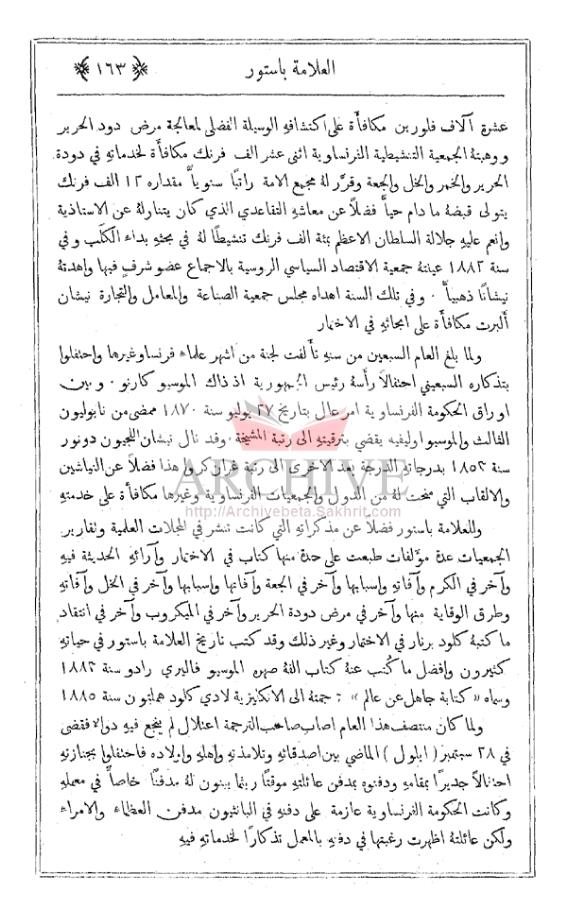 العلامة باستور ﴿ ١٦٣ ﴾
عشرة آلاف فلورين مكافأة على اكتشافه الوسيلة الفضلى لمعالجة مرض دود الحرير
ووهبتهُ الجمعية التنشيطية الفرنساوية اثنى عشر الف فرنك مكافأة لخدماته في دودة
الحرير والخمر والخل والجعة وقرَّر لهُ مجمع الامة راتبًا سنويًّا مقداره ١٢ الف فرنك
يتولى قبضهُ ما دام حيًّا فضلاً عن معاشه التقاعدي الذي كان يتناولهُ عن الاستاذية
وانعم عليه جلالة السلطان الاعظم بمئة الف فرنك تنشيطًا لهُ في بحثه بداء الكَلَب وفي
سنة ١٨٨٢ عينتهُ جمعية الاقتصاد السياسي الروسية بالاجماع عضو شرف فيها واهدتهُ
نيشانًا ذهبيًّا ٠ وفي تلك السنة اهداه مجلس جمعية الصناعة والمعامل والتجارة نيشان
ألبرت مكافأة على ابحاثه في الاختمار
ولما بلغ العام السبعين من سنه تألفت لجنة من اشهر علماء فرنسا وغيرها واحتفلوا
بتذكاره السبعيني احتفالاً رأسهُ رئيس الجمهورية اذ ذاك الموسيو كارنو ٠ وبين
اوراق الحكومة الفرنساوية امر عال بتاريخ ٢٧ يوليو سنة ١٨٧٠ ممضى من نابوليون
الثالث والموسيو اوليفيه يقضي بترقيته الى رتبة المشيخة ٠ وقد نال نيشان اللجيون دونور
سنة ١٨٥٣ بدرجاته الدرجة بعد الاخرى الى رتبة غران كروا هذا فضلاً عن النياشين
والالقاب التي منحت لهُ من الدول والجمعيات الفرنساوية وغيرها مكافأة على خدمته
ARCHIVE
http://Archivebeta.Sakhrit.com
وللعلامة باستور فضلاً عن مذكراته التي كانت تنشر في المجلات العلمية وتقارير
الجمعيات عدة مؤلفات طبعت على حدة منها كتاب في الاختمار وآرائه الحديثة فيه
وآخر في الكرم وآفاته واسبابها وآخر في الجعة وآفاتها واسبابها وآخر في الخل وآفاته
وطرق الوقاية منها وآخر في مرض دودة الحرير وآخر في الميكروب وآخر في انتقاد
ما كتبهُ كلود برنار في الاختمار وغير ذلك وقد كتب تاريخ العلامة باستور في حياته
كثيرون وافضل ما كُتب عنهُ كتاب الفهُ صهره الموسيو فاليري رادو سنة ١٨٨٣
وسماه « كتابة جاهل عن عالم » ترجمته الى الانكليزية لادي كلود هملتون سنة ١٨٨٥
ولما كان منتصف هذا العام اصاب صاحب الترجمة اعتلال لم ينجع فيه دواء فقضى
في ٢٨ سبتمبر ( ايلول ) الماضي بين اصدقائه وتلامذته واهله واولاده فاحتفلوا بجنازته
احتفالاً جديرًا بمقامه ودفنوه بمدفن عائلته موقتًا ريثما يبنون لهُ مدفنًا خاصًّا في معمله
وكانت الحكومة الفرنساوية عازمة على دفنه في البانثيون مدفن العظماء والامراء
ولكن عائلتهُ اظهرت رغبتها في دفنه بالمعمل تذكارًا لخدماته فيه